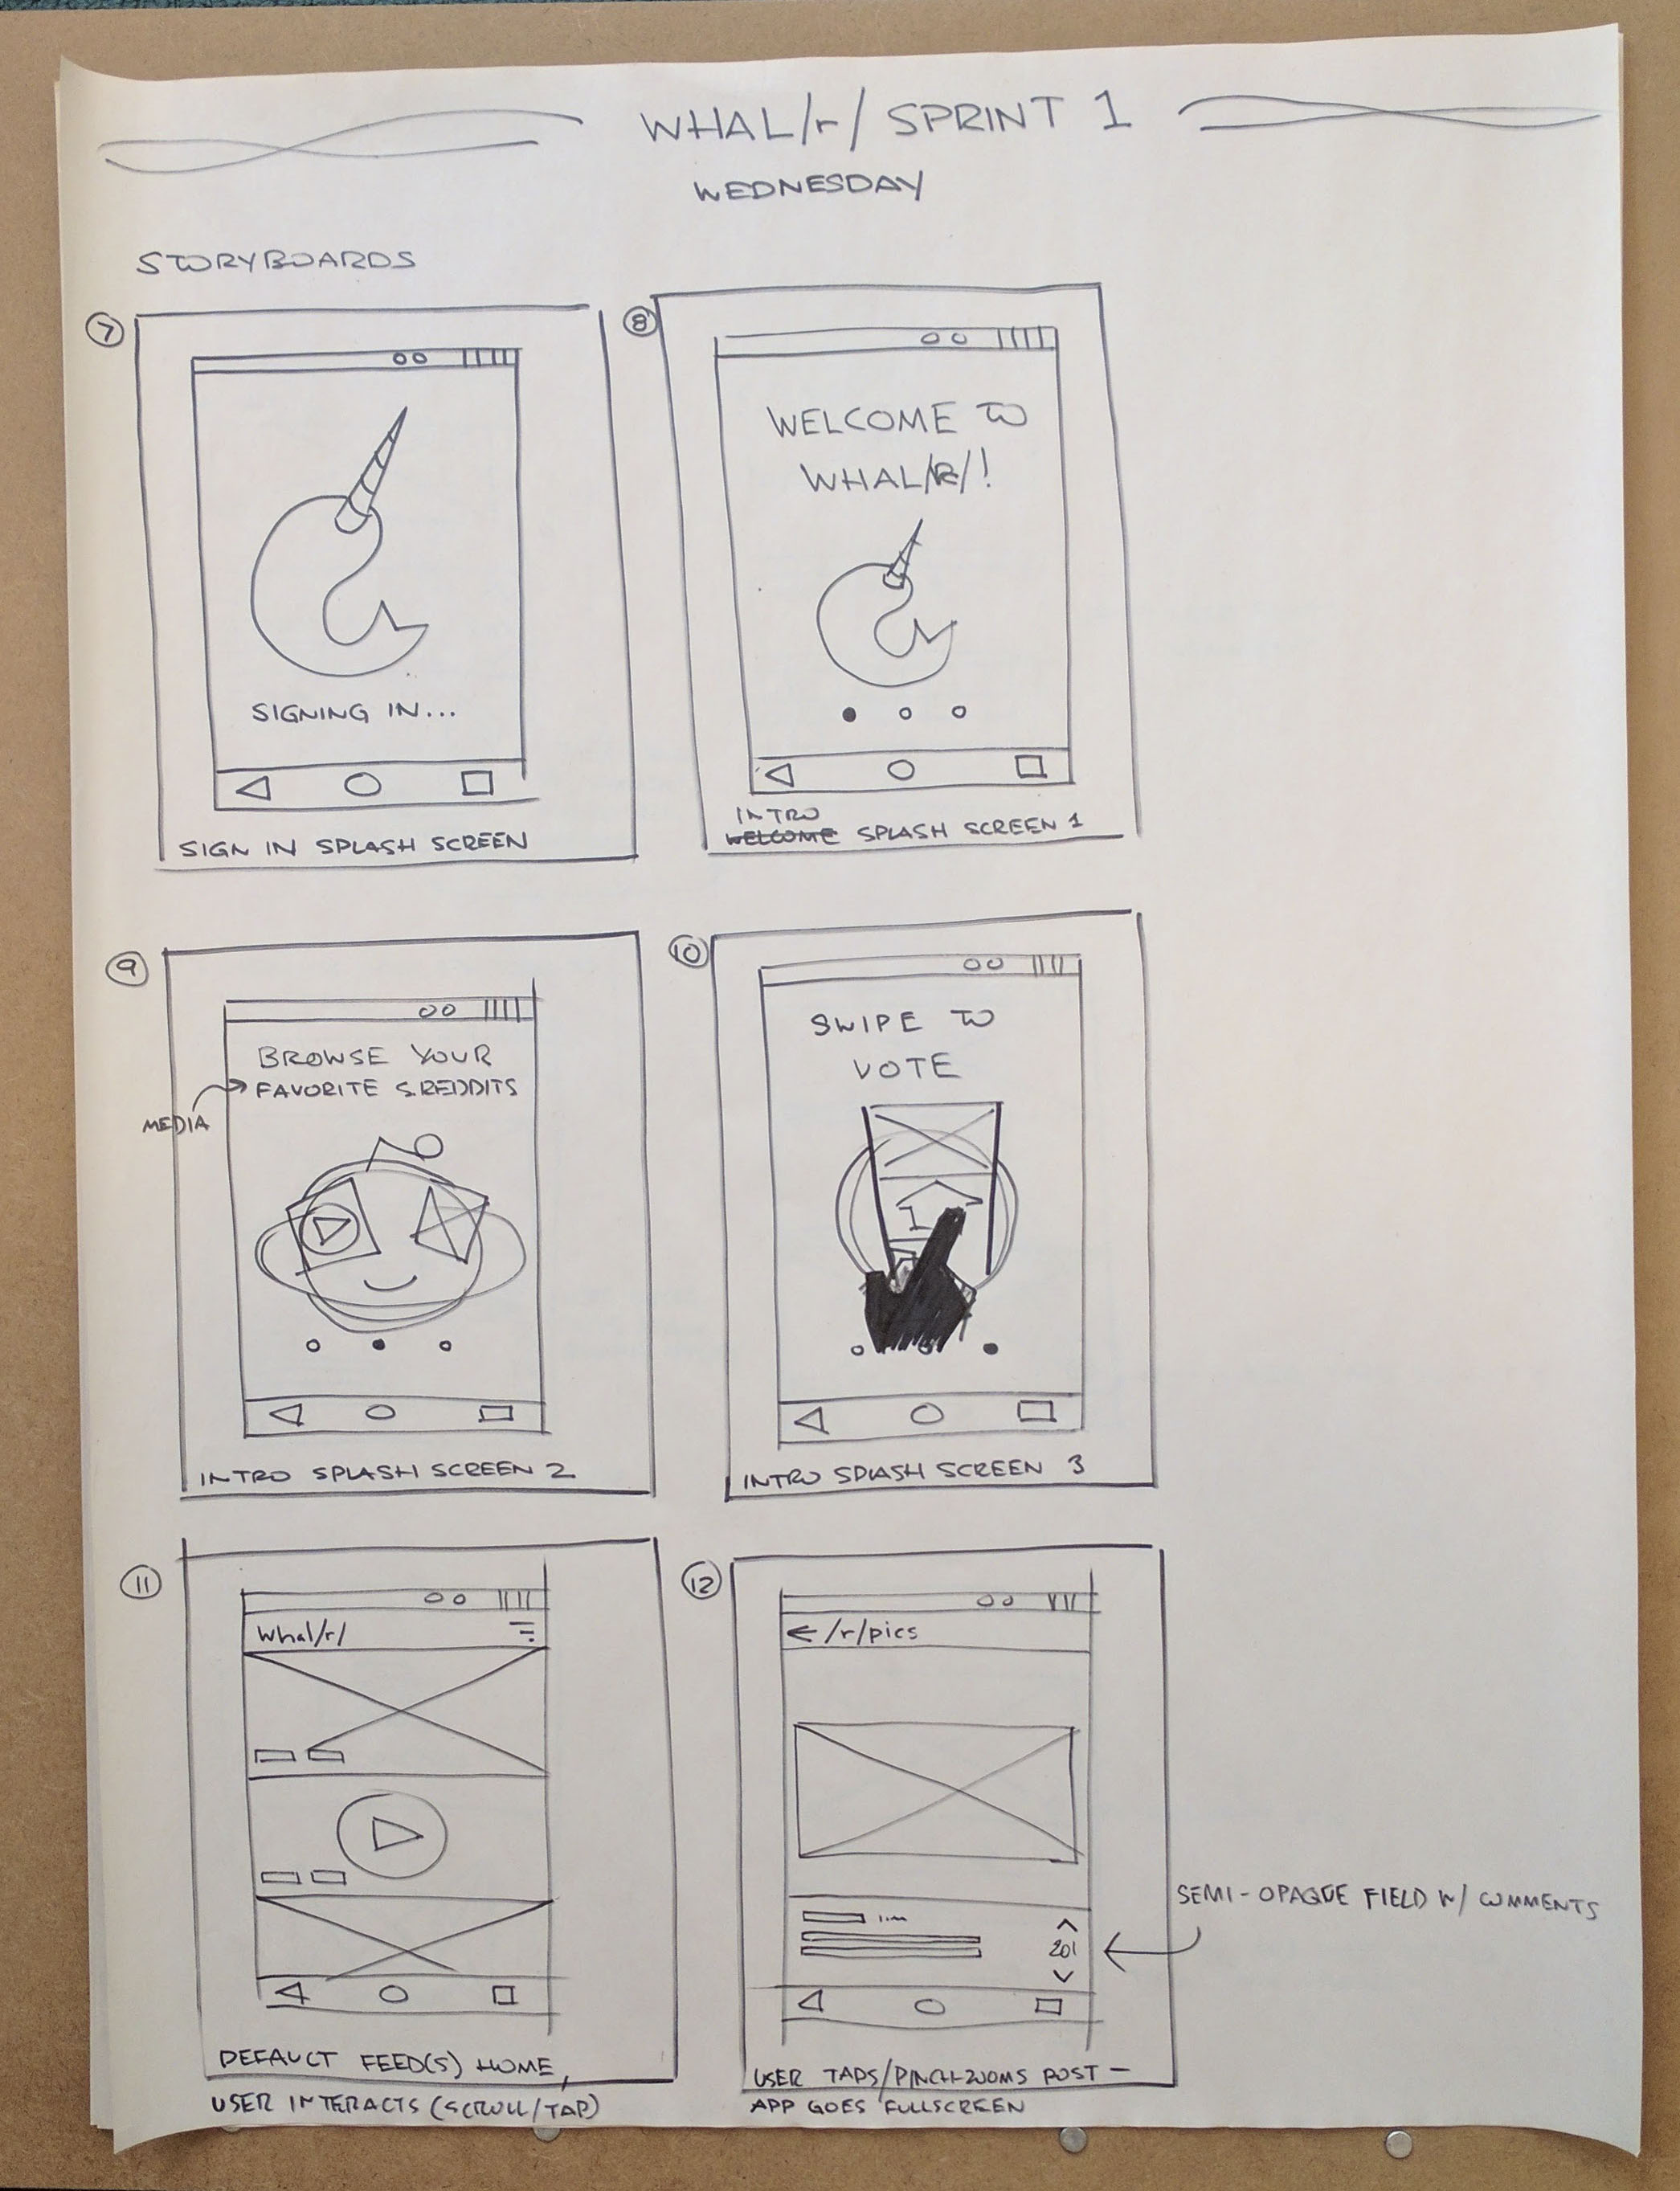 WHAL/r/ SPRINT 1
WEDNESDAY
STORYBOARDS
7
SIGNING IN...
SIGN IN SPLASH SCREEN
8
WELCOME TO
WHAL/R/!
INTRO
WELCOME SPLASH SCREEN 1
9
BROWSE YOUR
FAVORITE S.REDDITS
MEDIA
INTRO SPLASH SCREEN 2
10
SWIPE TO
VOTE
INTRO SPLASH SCREEN 3
11
whal/r/
DEFAULT FEED(S) HOME,
USER INTERACTS (SCROLL/TAP)
12
/r/pics
SEMI-OPAQUE FIELD W/ COMMENTS
201
USER TAPS/PINCH-ZOOMS POST -
APP GOES FULLSCREEN